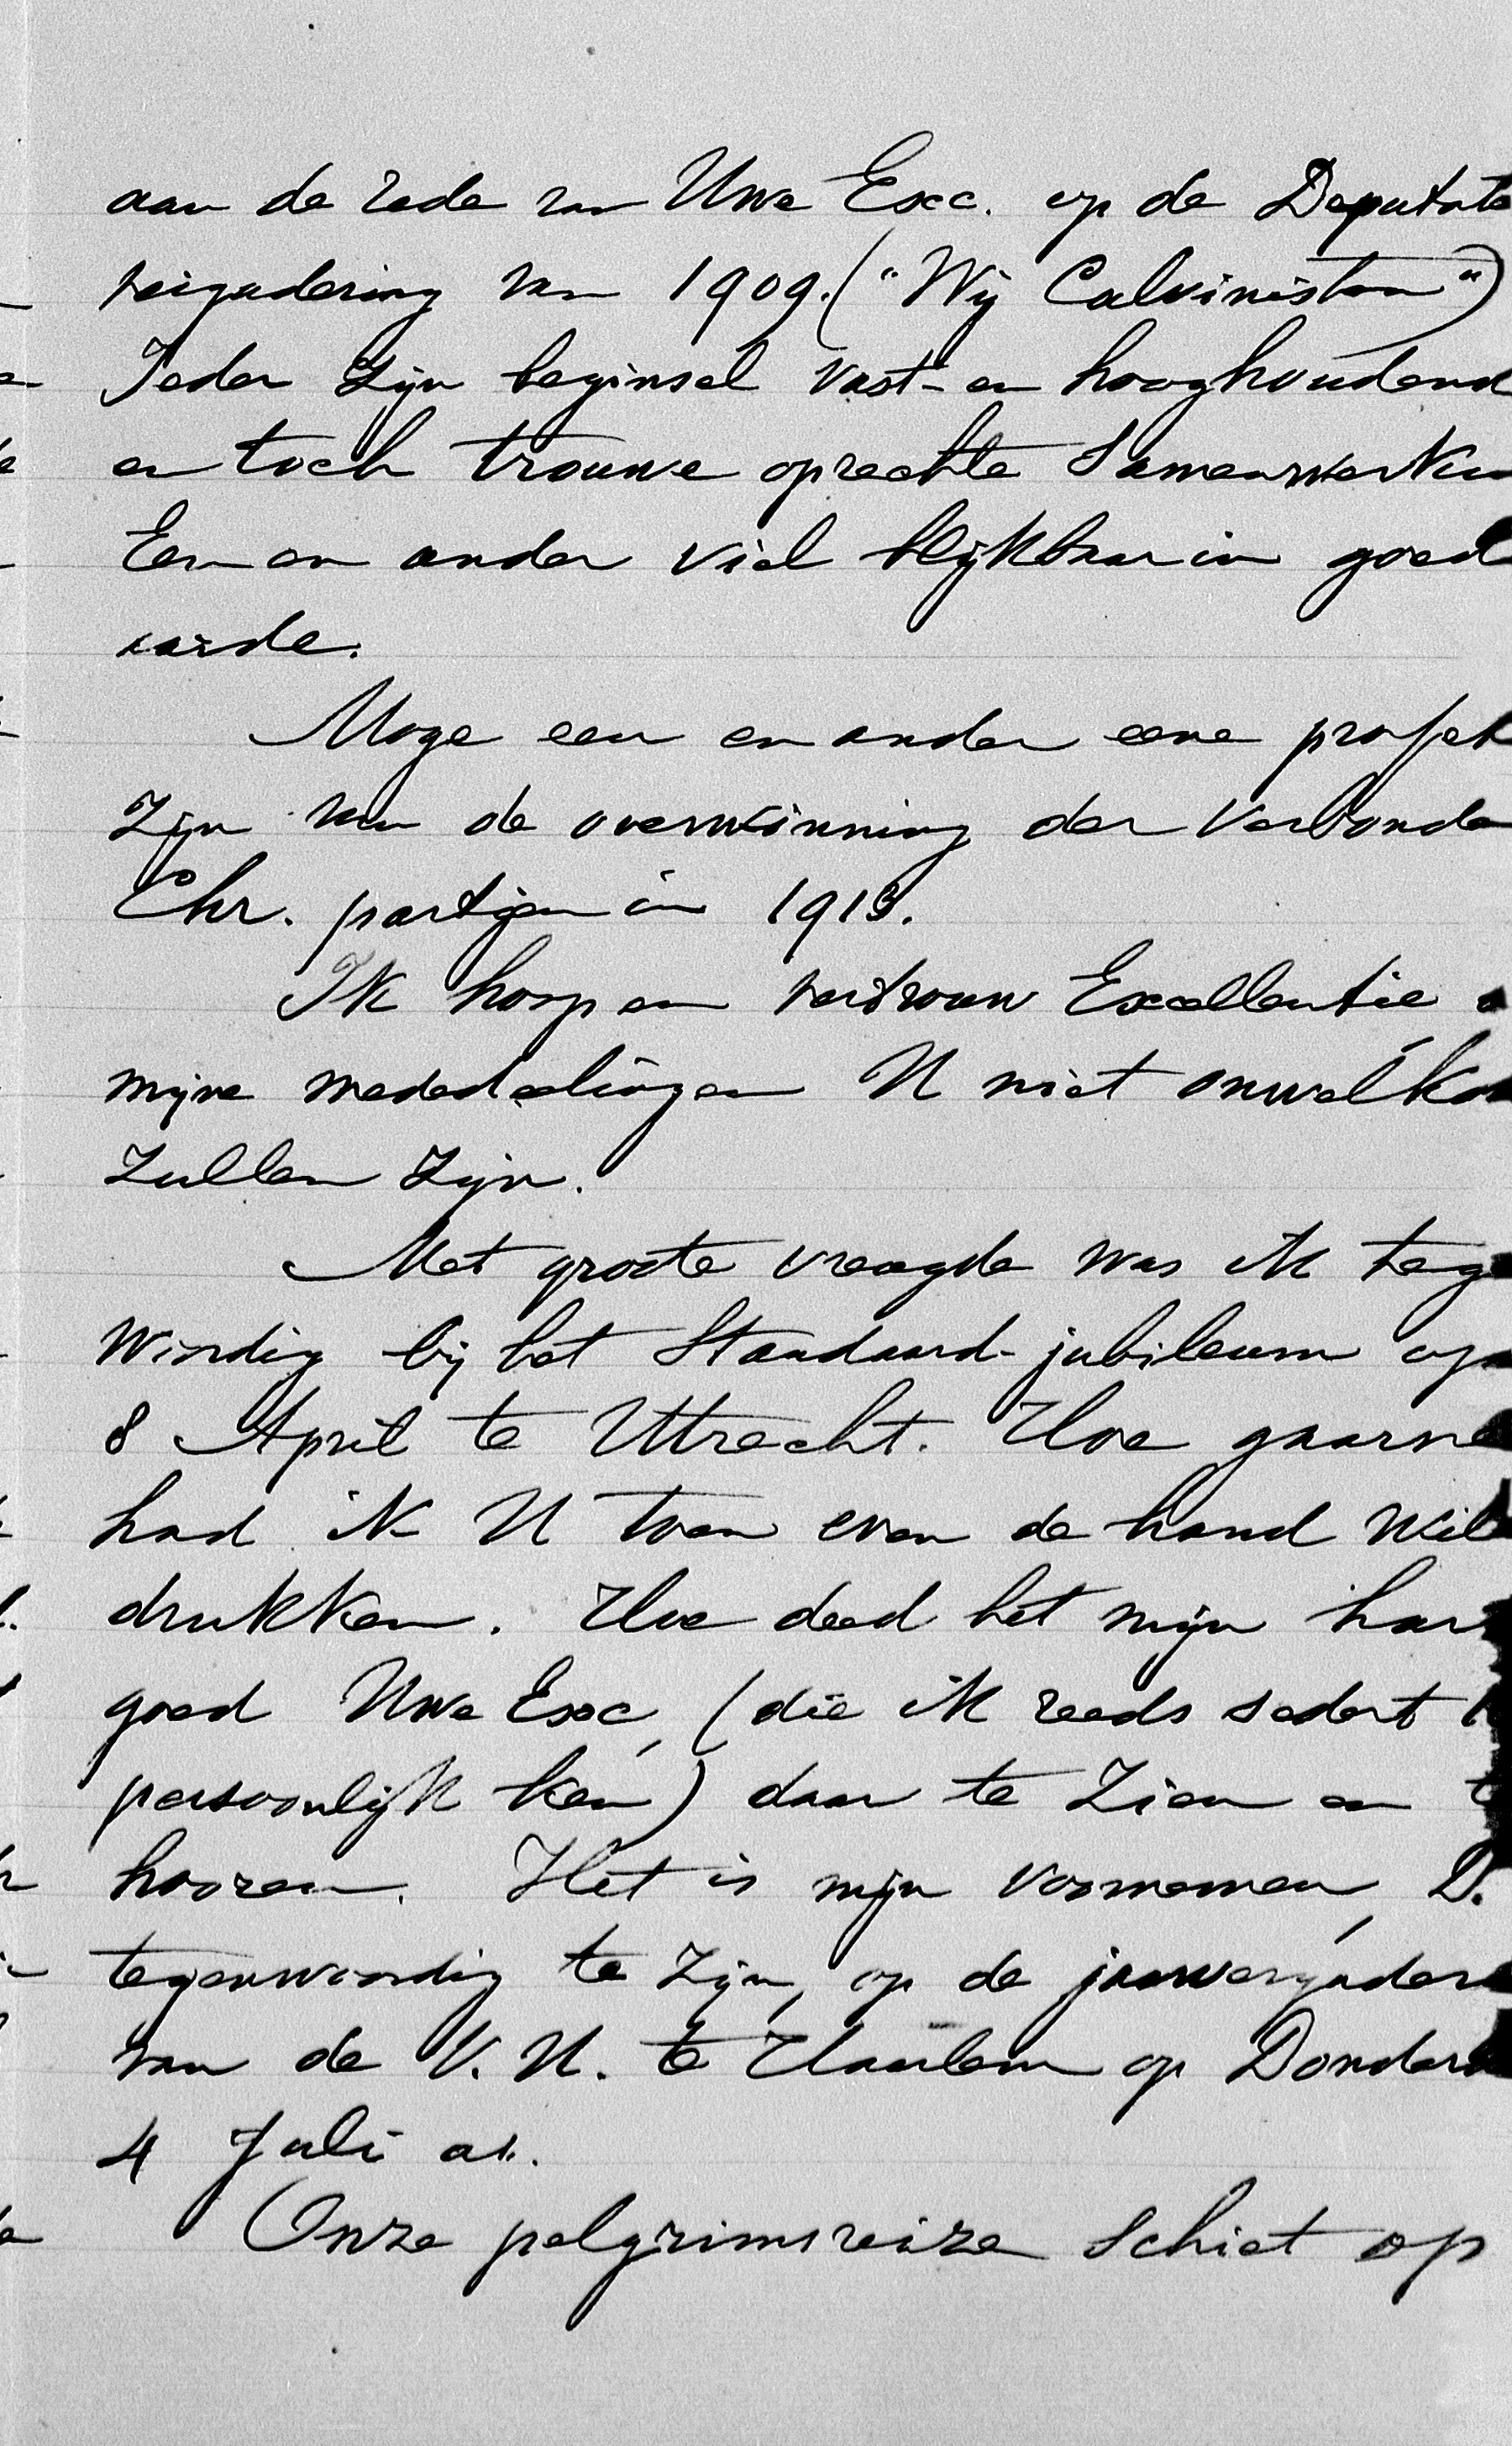 aan de rede van Uwe Exc. op de Deputate
vergadering van 1909. ("Wij Calvinisten")
Ieder zijn beginsel vast- en hooghoudend
en toch trouwe oprechte samenwerkin
Een en ander viel blijkbaar in goed
aarde.
Moge een en ander eene profet
zijn van de overwinning der verbonde
Chr. partijen in 1913.
Ik hoop en vertrouw Excellentie
mijne mededeelingen U niet onwelko
zullen zijn.
Met groote vreugde was ik tege
woordig bij het Standaard-jubileum op
8 April te Utrecht. Hoe gaarne
had ik U toen even de hand wil
drukken. Hoe deed het mijn har
goed Uwe Exc, (die ik reeds sedert
persoonlijk ken) daar te zien en t
hooren. Het is mijn voornemen, D.
tegenwoordig te zijn, op de jaarvergader
van de V. U. te Haarlem op Donder
4 Juli as.
Onze pelgrimsreize schiet op